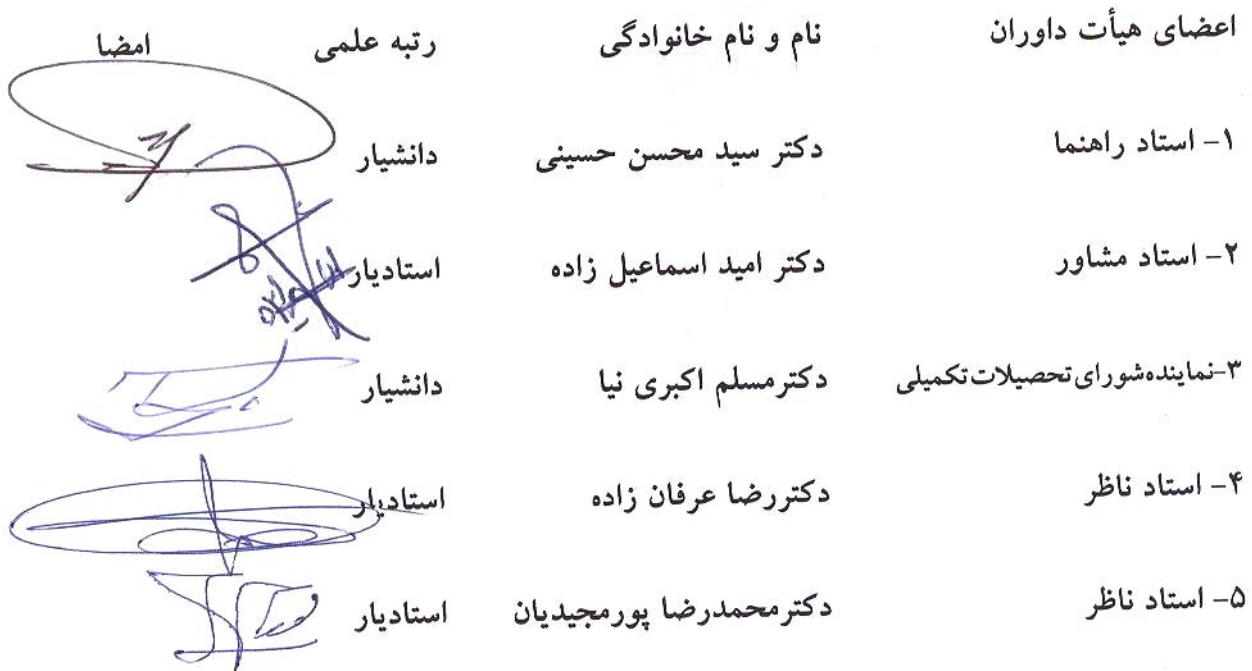 اعضای هیأت داوران نام و نام خانوادگی رتبه علمی امضا
۱- استاد راهنما دکتر سید محسن حسینی دانشیار
۲- استاد مشاور دکتر امید اسماعیل زاده استادیار
۳-نماینده‌شورای‌تحصیلات‌تکمیلی دکترمسلم اکبری نیا دانشیار
۴- استاد ناظر دکتررضا عرفان زاده استادیار
۵- استاد ناظر دکترمحمدرضا پورمجیدیان استادیار